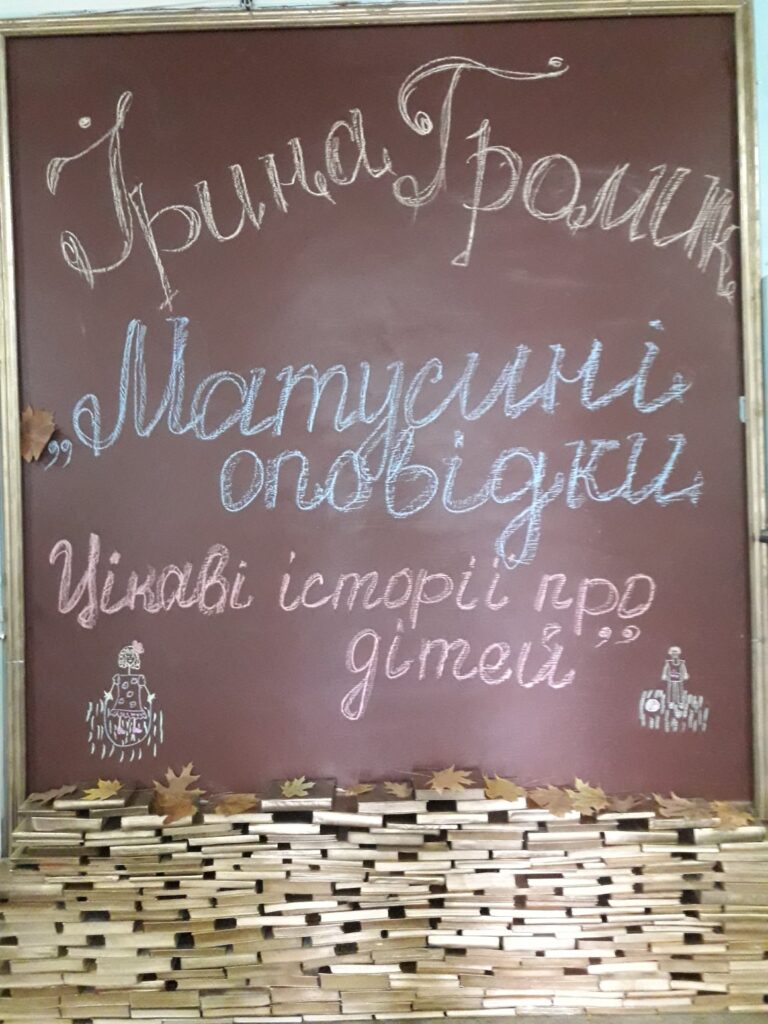 Ірина Громик
„Матусині
оповідки
Цікаві історії про
дітей”